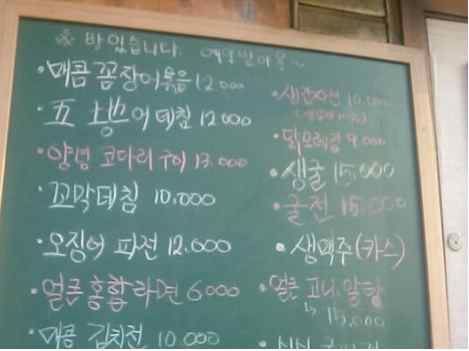 ※ 바 있습니다.
·매콤 꼼장어볶음 12000
·五 징어 데침 12000
·양념 코다리 구이 13.000
·꼬막데침 10.000
·오징어 파전 12.000
·얼큰 홍합라면 6000
·매콤 김치전 10.000
9.000
·생굴 15,000
·굴전 15.000
·생맥주(카스)
·얼큰 고니, 알탕
↳ 15,000